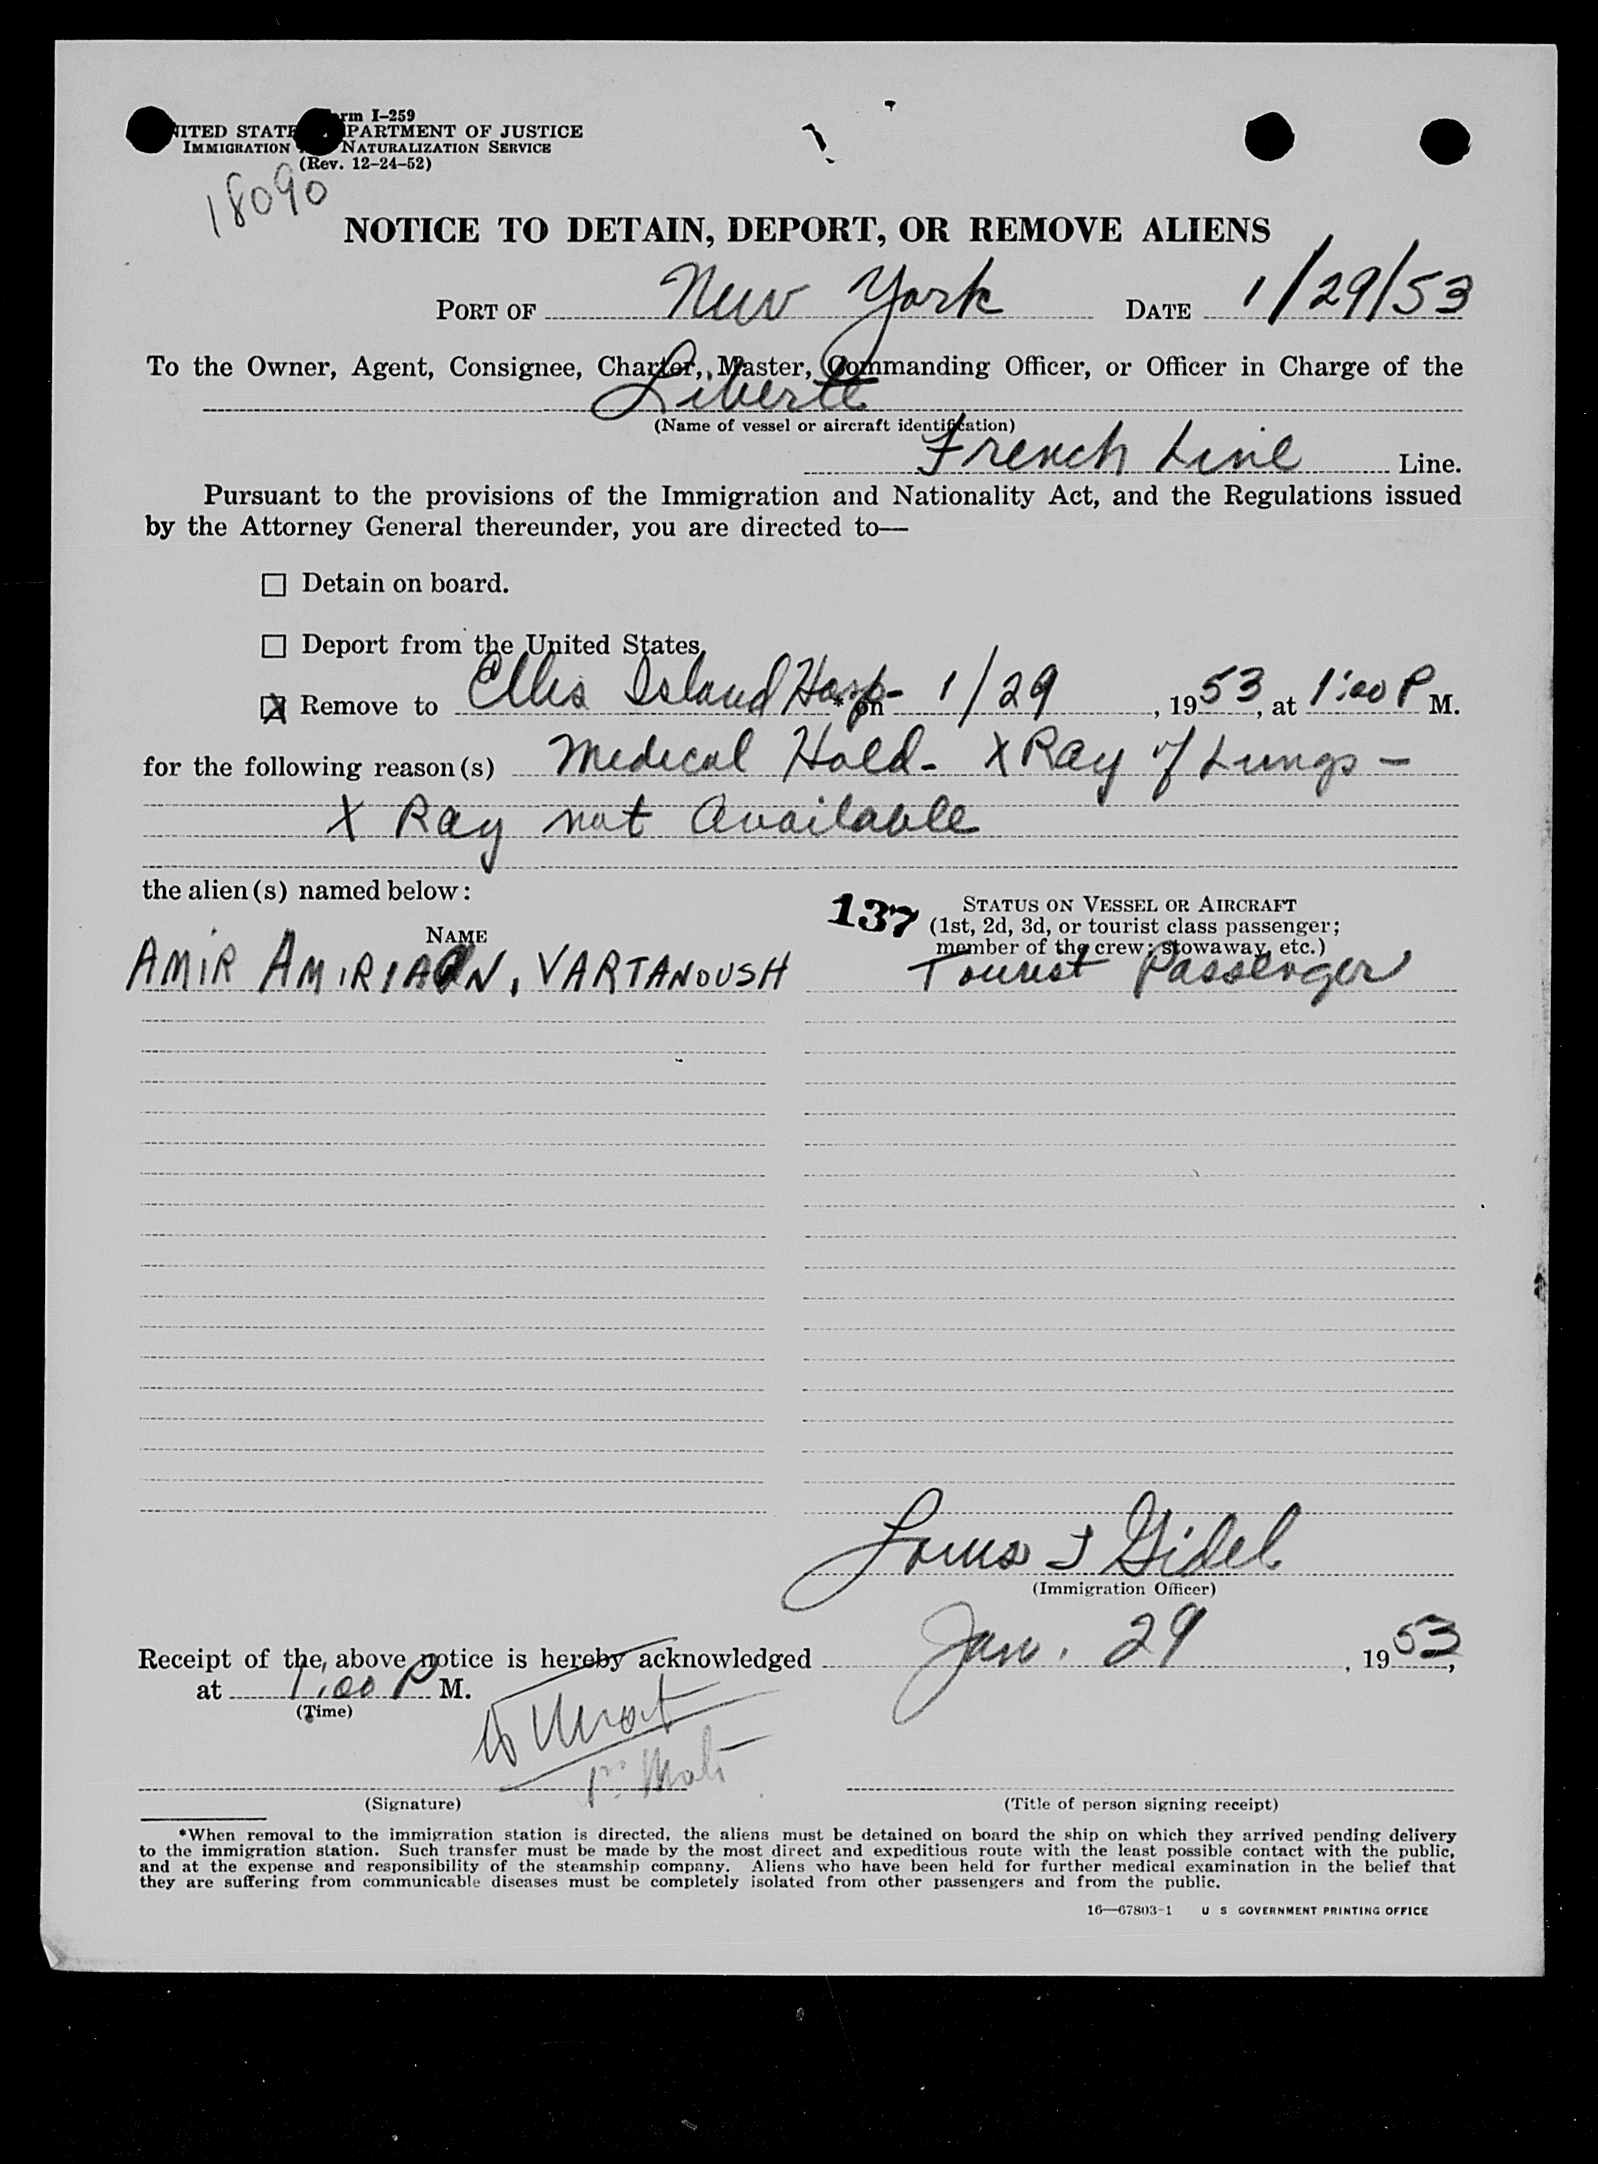 Form I-259
UNITED STATES DEPARTMENT OF JUSTICE
IMMIGRATION AND NATURALIZATION SERVICE
(Rev. 12-24-52)
18090
NOTICE TO DETAIN, DEPORT, OR REMOVE ALIENS
PORT OF New York DATE 1/29/53
To the Owner, Agent, Consignee, Charter, Master, Commanding Officer, or Officer in Charge of the
Liberte
(Name of vessel or aircraft identification)
French Line Line.
Pursuant to the provisions of the Immigration and Nationality Act, and the Regulations issued
by the Attorney General thereunder, you are directed to—
☐ Detain on board.
☐ Deport from the United States.
☒ Remove to Ellis Island Hosp- * on 1/29, 1953, at 1:00 P M.
for the following reason(s) Medical Hold- X Ray of Lungs -
X Ray not Available
the alien(s) named below:
137
STATUS ON VESSEL OR AIRCRAFT
(1st, 2d, 3d, or tourist class passenger;
member of the crew; stowaway, etc.)
NAME
AMIR AMIRIAN, VARTANOUSH Tourist Passenger
Louis J Gidel
(Immigration Officer)
Receipt of the above notice is hereby acknowledged Jan. 29, 1953,
at 1:00 P M.
(Time)
(Signature) (Title of person signing receipt)
*When removal to the immigration station is directed, the aliens must be detained on board the ship on which they arrived pending delivery
to the immigration station. Such transfer must be made by the most direct and expeditious route with the least possible contact with the public,
and at the expense and responsibility of the steamship company. Aliens who have been held for further medical examination in the belief that
they are suffering from communicable diseases must be completely isolated from other passengers and from the public.
16—67803-1 U S GOVERNMENT PRINTING OFFICE